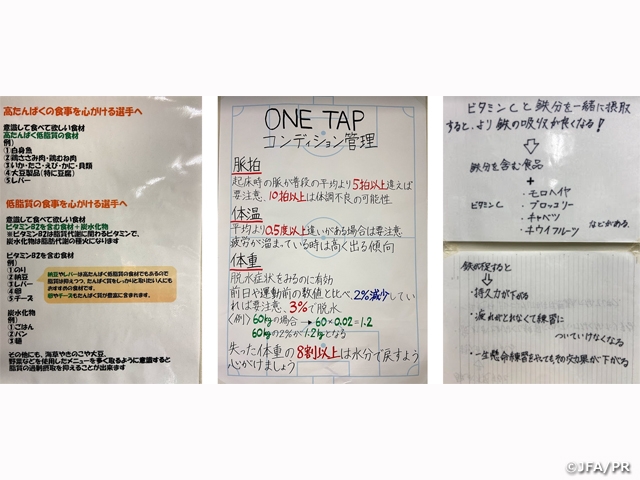 高たんぱくの食事を心がける選手へ
意識して食べて欲しい食材
高たんぱく低脂質の食材
例）
①白身魚
②鶏ささみ肉・鶏むね肉
③いか・たこ・えび・かに・貝類
④大豆製品（特に豆腐）
⑤レバー
低脂質の食事を心がける選手へ
意識して食べて欲しい食材
ビタミンB2を含む食材＋炭水化物
※ビタミンB2は脂質代謝に関わるビタミンで、
炭水化物は脂肪代謝の種火になります
ビタミンB2を含む食材
例）
①のり
②納豆
③レバー
④卵
⑤チーズ
納豆やレバーは高たんぱく低脂質の食材でもあるので
脂質は抑えつつ、たんぱく質をしっかりと取りたい人にも
おすすめの食材です。
卵やチーズもたんぱく質が豊富に含まれます。
炭水化物
例）
①ごはん
②パン
③麺
その他にも、海藻やきのこや大豆、
野菜などを使用したメニューを多く取るように意識すると
脂質の過剰摂取を抑えることが出来ます
ONE TAP
コンディション管理
脈拍
起床時の脈が普段の平均より5拍以上違えば
要注意、10拍以上は体調不良の可能性
体温
平均より0.5度以上違いがある場合は要注意
疲労が溜まっている時は高く出る傾向
体重
脱水症状をみるのに有効
前日や運動前の数値と比べ、2%減少してい
れば要注意、3%で脱水
〈例〉60kgの場合 → 60×0.02=1.2
60kgの2%が1.2kgとなる
失った体重の8割以上は水分で戻すよう
心がけましょう
ビタミンCと鉄分を一緒に摂取
すると、より鉄の吸収が良くなる！
鉄分を含む食品
+
ビタミンC
・モロヘイヤ
・ブロッコリー
・キャベツ
・キウイフルーツ
などがある。
鉄が不足すると
・持久力が下がる
・疲れがとれなくて練習に
ついていけなくなる
・一生懸命練習をやってもその効果が下がる
©JFA/PR